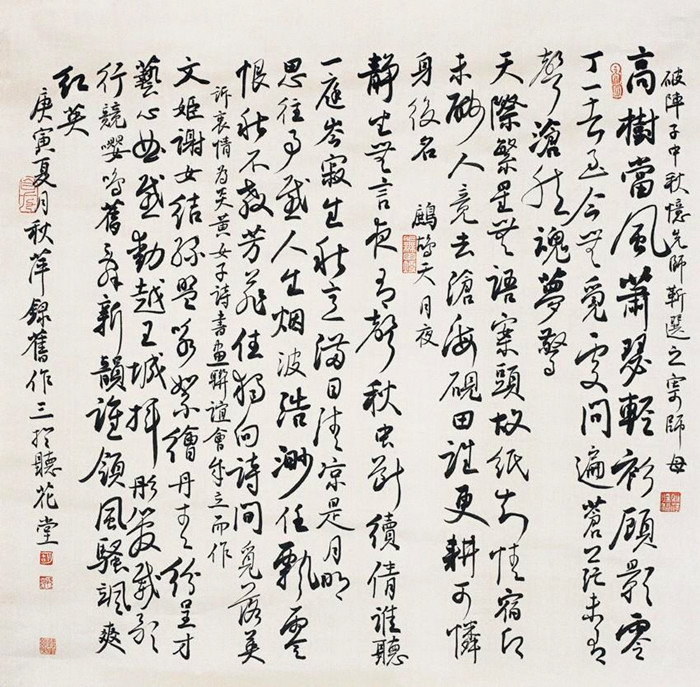 破陣子中秋憶先師靳選之寄師母
高樹當風蕭瑟輕衫顧影零
丁一去至今無覓處問遍蒼茫未有
聲滄然魂夢驚
天際繁星無語案頭故紙知情宿
未人竟去滄海硯田誰更耕可憐
身後名 鷓鴣天月夜
靜坐無言夜有聲秋虫斷續倩誰聽
一庭岑寂生秋意滿目清凉是月明
思往事感人生烟波浩渺任飄零
恨秋不教芳菲住獨向詩間覓落英
訴衷情為炎黃女子詩書畫聯誼會成立而作
文姬謝女結絲盟詠絮繪丹青紛呈才
藝心曲感動越王城揮彤管
行競嚶鳴舊辭新韻誰領風騷颯爽
紅英
庚寅夏月秋萍錄舊作三於聽花堂